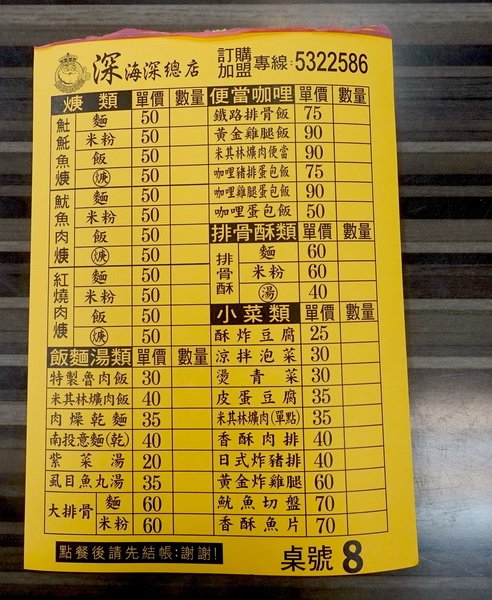 深海深總店
訂購
加盟 專線:5322586
焿類 單價 數量
魠魚焿
麵 50
米粉 50
飯 50
焿 50
魷魚肉焿
麵 50
米粉 50
飯 50
焿 50
紅燒肉焿
麵 50
米粉 50
飯 50
焿 50
飯麵湯類 單價 數量
特製魯肉飯 30
米其林爌肉飯 40
肉燥乾麵 35
南投意麵(乾) 40
紫菜湯 20
虱目魚丸湯 35
大排骨
麵 60
米粉 60
便當咖哩 單價 數量
鐵路排骨飯 75
黃金雞腿飯 90
米其林爌肉便當 90
咖哩豬排蛋包飯 75
咖哩雞腿蛋包飯 90
咖哩蛋包飯 50
排骨酥類 單價 數量
排骨酥
麵 60
米粉 60
湯 40
小菜類 單價 數量
酥炸豆腐 25
涼拌泡菜 30
燙青菜 30
皮蛋豆腐 35
米其林爌肉(單點) 35
香酥肉排 40
日式炸豬排 40
黃金炸雞腿 60
魷魚切盤 70
香酥魚片 70
點餐後請先結帳:謝謝!
桌號 8